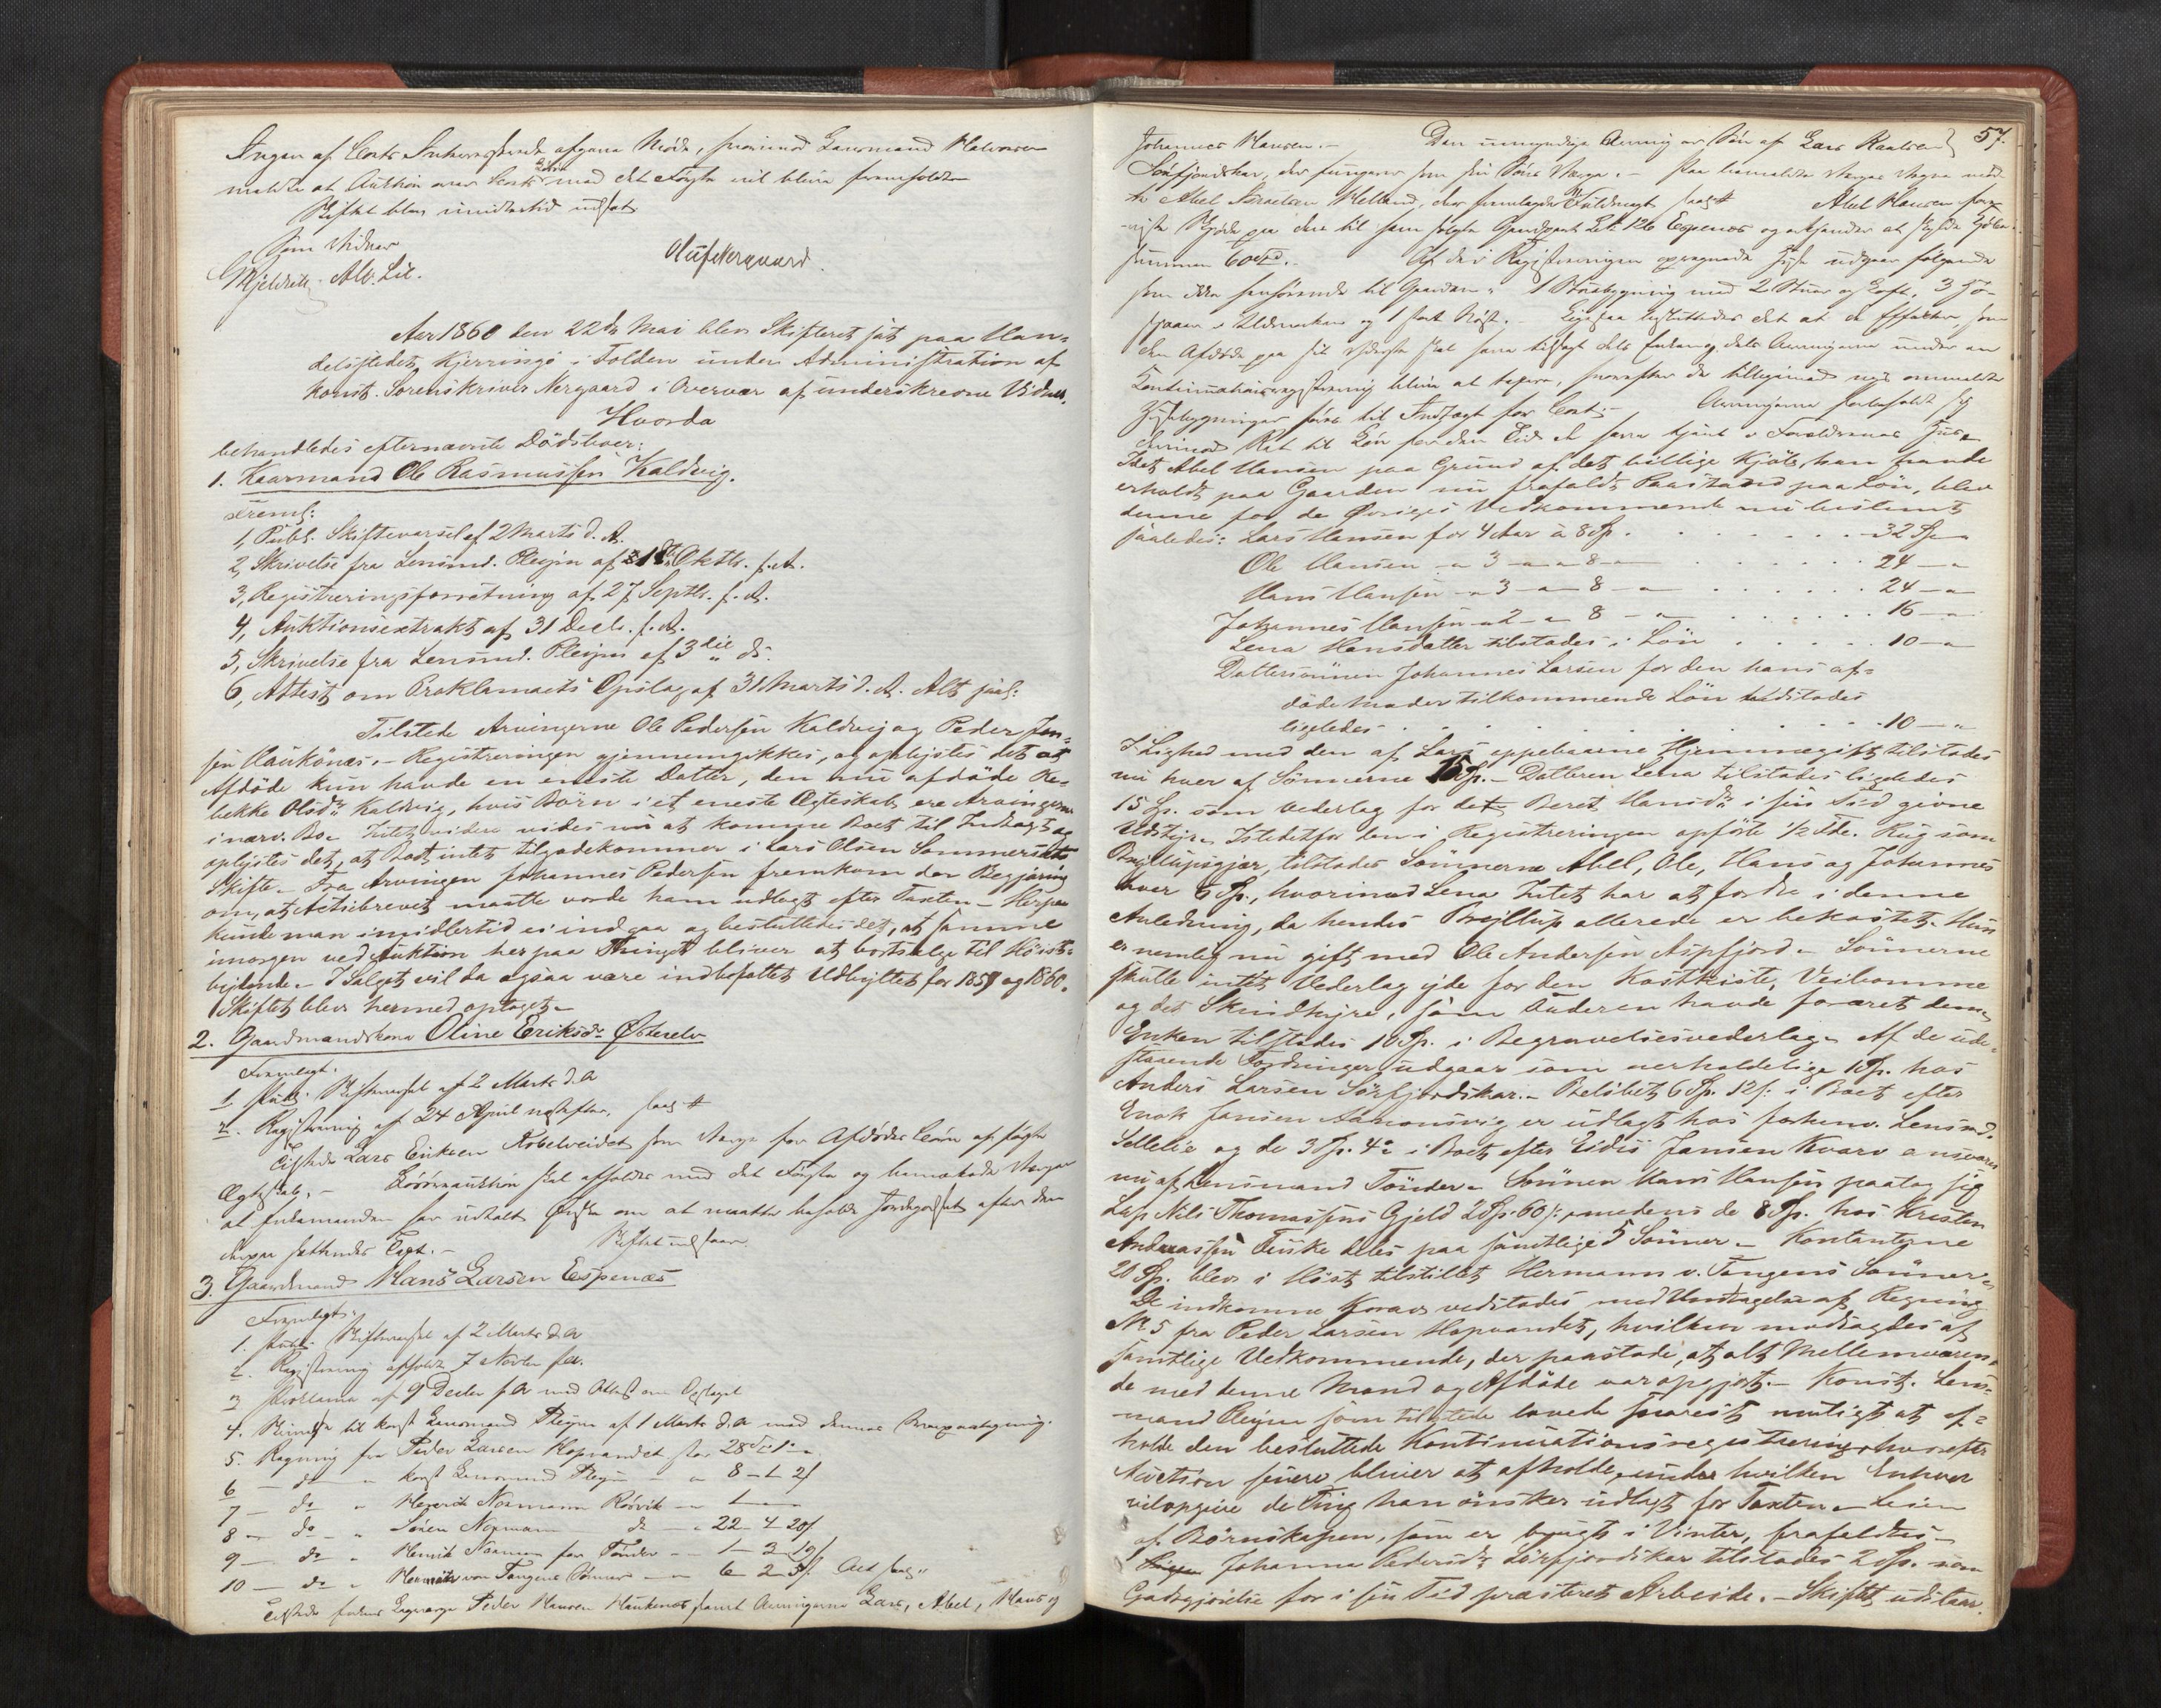 Ingen af Boets Interessentere afgave Møde, hvorimod Lensmand Halvorsen
meldte at Auktion over Boets med det Første vil blive foranstaltet
Skiftet blev imidlertid udsat
Som Vidner
Mjelde Alb. Lie.
Olufnergaard.
Aar 1860 den 22de Mai blev Skifteret sat paa Han-
delsstedet Kjerringø i Folden under Administration af
Konst. Sorenskriver Nergaard i Overvær af underskrevne Vidner.
Hvorda
behandledes efternævnte Dødsboer:
1. Kaarmand Ole Rasmussen Kaldvig.
Freml:
1, Publ. Skiftevarsel af 2 Marts d. A.
2, Skrivelse fra Lensmd. Pleym af Oktbr. f. A.
3, Registreringsforretning af 27 Septbr. f. A.
4, Auktionsextrakt af 31 Decbr. f. A.
5, Skrivelse fra Lensmd. Pleym af 3die ds.
6, Attest om Proklamaets Opslag af 31 Marts d. A. Alt saal:
Tilstede Arvingerne Ole Pedersen Kaldvig og Peder Jen-
sen Haukönæs. - Registreringen gjennemgikkes, og oplystes det at
Afdöde kun havde en eneste Datter, den nu afdöde Re-
bekke Olsdr Kaldvig, hvis Börn i et eneste Ægteskab ere Arvingerne
i nærv. Bo. Intet videre vides nu at komme Boet til Indtægt og
oplystes det, at Boet intet tilgodekommer i Lars Olsen Sommersets
Skifte. - Fra Arvingen Johannes Pedersen fremkom den Begjæring
om, at Actiebrevet maatte vorde ham udlagt efter Taxten. - Herpaa
kunde man imidlertid ei indgaa og besluttedes det, at samme
imorgen ved Auktion her paa Thinget bliver at bortsælge til Höist-
bydende. - I Salget vil da ogsaa være indbefattet Udbyttet for 1859 og 1860.
Skiftet blev hermed optaget. -
2. Gaardmandskone Oline Eriksdr Østerelv
Fremlagt:
1. Publ. Skiftevarsel af 2 Marts d. A
2. Registrering af 24 April næstefter, saal #
Tilstede Lars Eriksen Kobelveidet som Værge for Afdødes Børn af første
Ægteskab. - Løsøreauktion skal afholdes med det Første og bemærkede Værgen
at Enkemanden har udtalt Ønske om at maatte beholde Jordegodset efter den
derpaa satte Taxt. - Skiftet udstaar.
3. Gaardmand Hans Larsen Espenæs
Fremlagt:
1. Publ. Skiftevarsel af 2 Marts d. A
2. Registrering afholdt 7 Novbr f. A.
3 Proklama af 9 Decbr f. A med Attest om Opslaget
4. Skrivelse til konst Lensmand Pleym af 1 Marts d. A med dennes Svarpaategning.
5. Regning fra Peder Larsen Hopvandet stor 28 Sp 1 -
6 - do " konst Lensmand Pleym - " 8 - 1 - 21
7 - do " Henrik Normann Rörvik - " 1 - -
8 - do - " Sören Normann do - " 22 - 4 20/
9 - do " Henrik Normann for Tönder - - 1 - 3 - 19/
10 - do " Hermann von Tangens Sønner - - 6 2 - 5/ Alt saal:
Tilstede Enkens Laugværge Peder Hansen Haukenæs samt Arvingerne Lars, Abel, Hans og
57.
Johannes Hansen. - Den umyndige Arving er Søn af Lars Kaalsen
Sörfjordskar, der fungerer som sin Söns Værge. - Paa bemeldte Værges Vegne mød-
te Abel Israelsen Helland, der fremlagde Fuldmagt saal # Abel Hansen frem-
viste Skjöde paa den til ham solgte Gaardpart Lit 126 Espenæs og erkjender at skylde Kjöbe-
summen 60 Spd. - Af de i Registreringen opregnede Huse udgaar følgende
som ikke henhörende til Gaarden: 1 Stuebygning med 2 Stuer og Loft, 3 Hø-
hjeller i Udmarken og 1 stort Nøst. Ligesaa besluttedes det at de Effekter, som
den Afdøde paa sit Yderste skal have tillagt dels Enken og dels Arvingerne under en
Kontinuationsregistrering blive at taxere, hvorefter de tilligemed nys ommeldte
Husebygninger føres til Indtægt for Boet. - Arvingerne forbeholdt sig
derimod Ret til Løn for den Tid de have tjent i Forældrenes Hus. -
Idet Abel Hansen paa Grund af det billige Kjöb, han havde
erholdt paa Gaarden nu frafaldt Paastand paa Lön, blev
denne for de Øvriges Vedkommende nu bestemt
saaledes: Lars Hansen for 4 Aar à 8 Sp. . . . . . . 32 Sp. "
Ole Hansen - " 3 - " - " 8 - " . . . . . . 24 - "
Hans Hansen - " 3 - " - 8 - " . . . . . . 24 - "
Johannes Hansen - " 2 - " 8 - " . . . . . . 16 - "
Lena Hansdatter tilstodes i Lön . . . . . 10 - "
Dattersönnen Johannes Larsen for den hans af-
döde Moder tilkommende Lön tilstodes
ligeledes . . . . . . . . . . 10 - "
I Lighed med den af Lars oppebaarne Hjemmegift tilstodes
nu hver af Sönnerne 15 Sp. - Datteren Lena tilstodes ligeledes
15 Sp. som Vederlag for det Beret Hansdr i sin Tid givne
Udstyr. - Istedetfor den i Registreringen opförte 1/2 Tde. Rug som
Bryllupsgjær, tilstodes Sönnerne Abel, Ole, Hans og Johannes
hver 5 Sp., hvorimod Lena Intet har at fordre i denne
Anledning, da hendes Bryllup allerede er bekostet. Hun
er nemlig nu gift med Ole Andersen Aspfjord. - Sönnerne
skulle intet Vederlag yde for den Kostkiste, Veitromme
og det Skindhyre, som Faderen havde foræret dem.
Enken tilstodes 10 Sp. i Begravelsesvederlag. Af de ude-
staaende Fordringer udgaar som uerholdelige 10 Sp. hos
Anders Larsen Sörfjordskar. - Belöbet 6 Sp. 12 s: i Boet efter
Enok Jansen Aamonsvig er udlagt hos forhenv. Lensmd.
Settelie og de 3 Sp. 4 s i Boet efter Eidis Jansen Kvarv ansvares
nu af Lensmand Tönder. Sönnen Hans Hansen paatog sig
Lap Nils Thomassens Gjeld 2 Sp. 60 s: medens de 8 Sp. hos Kristen
Andreassen Finske deles paa samtlige 5 Sönner. - Kontanterne
20 Sp. blev i Höst tilstillet Hermann v. Tangens Sönner. -
De indkomne Krav vedstodes med Undtagelse af Regning
No 5 fra Peder Larsen Hopvandet, hvilken modsagdes af
samtlige Vedkommende, der paastode, at alt Mellemværen-
de med denne Mand og Afdöde var opgjort. - Konst. Lens-
mand Pleym som tilstede lovede snarest muligt at af-
holde den besluttede Kontinuationsregistrering, hvorefter
Auction siver bliver at afholde, under hvilken Enhver
vil opgive de Ting han önsker udlagt for Taxten. - Leien
af Börnskapen, som er brugt i Vinter, frafaldtes. -
Johanna Pedersdr Sörfjordskar tilstodes 2 Sp. som
Godtgjörelse for i sin Tid præsteret Arbeide. - Skiftet udstaar.